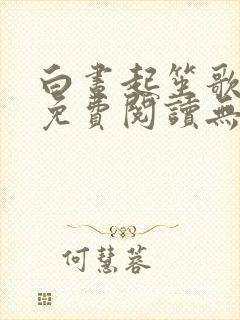 白晝起笙歌
免費閱讀無
何慧蓉